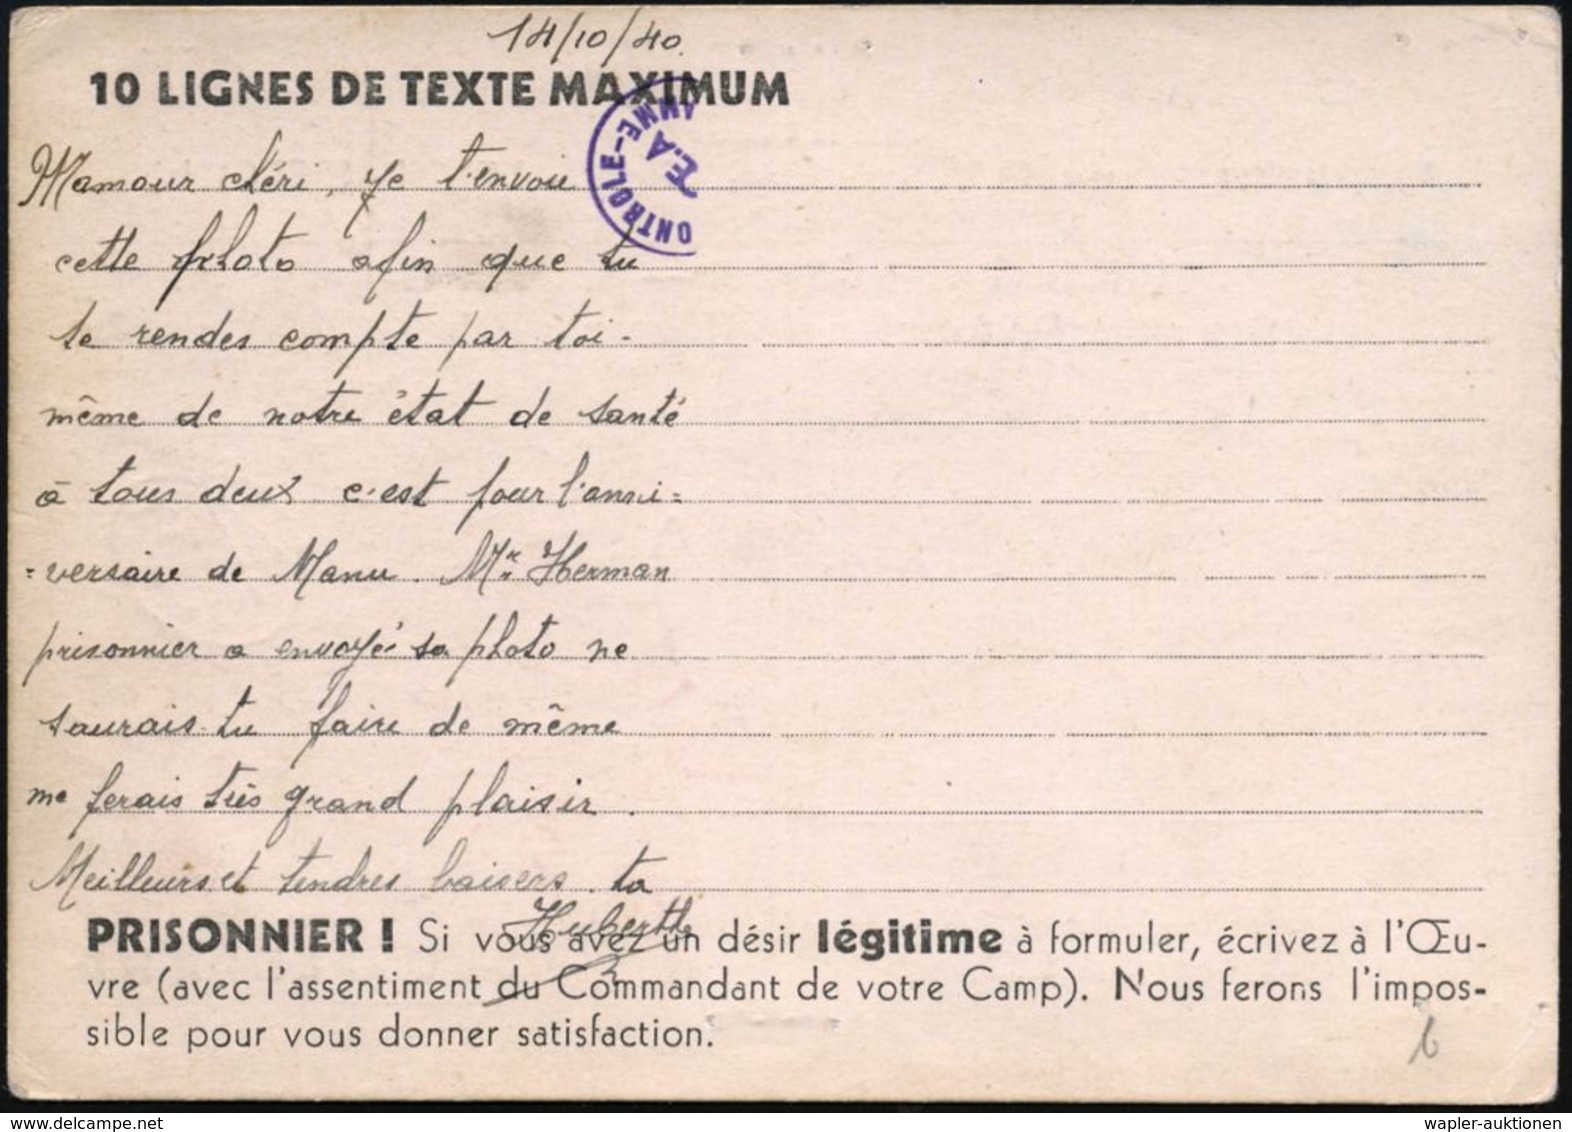 14/10/40.
10 LIGNES DE TEXTE MAXIMUM
ONTROLE-
E.A
AMME
Mamour chéri, je t'envoie
cette photo afin que tu
te rendes compte par toi-
même de notre état de santé
à tous deux c'est pour l'anni=
=versaire de Manu. Mr Herman
prisonnier a envoyé sa photo ne
saurais-tu faire de même
me ferais très grand plaisir.
Meilleurs et tendres baisers. ta
Huberthe
PRISONNIER ! Si vous avez un désir légitime à formuler, écrivez à l'Œu-
vre (avec l'assentiment du Commandant de votre Camp). Nous ferons l'impos-
sible pour vous donner satisfaction.
6
wapler-auktionen